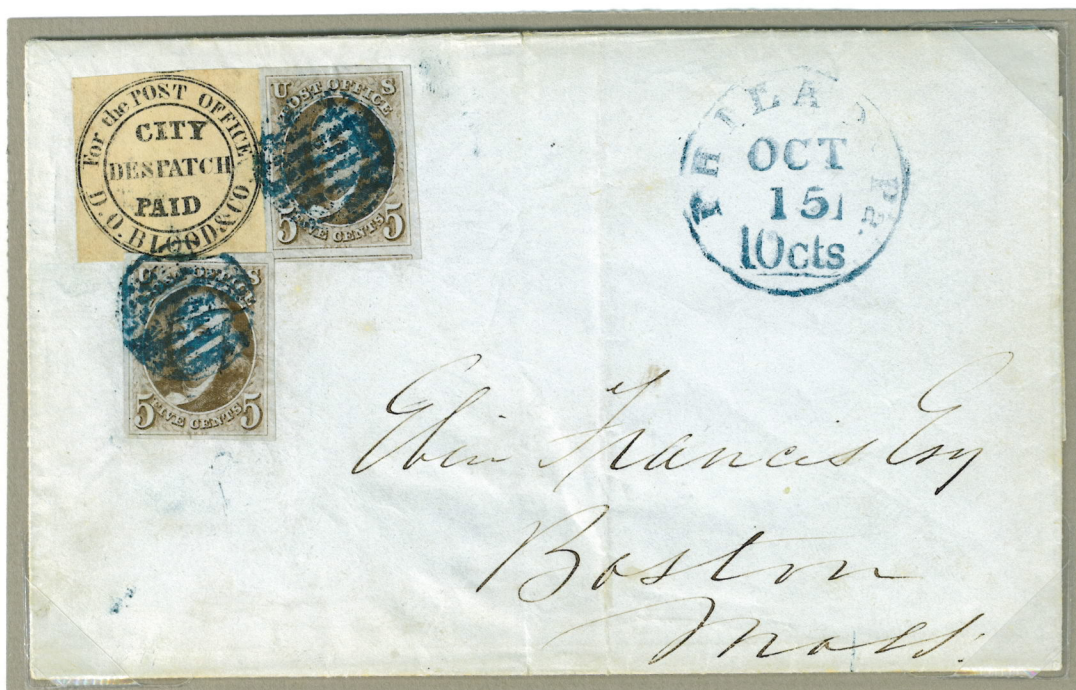 For the POST OFFICE
CITY
DESPATCH
PAID
D.O. BLOOD & CO.
U S
POST OFFICE
5 FIVE CENTS 5
U S
POST OFFICE
5 FIVE CENTS 5
PHILADA Pa.
OCT
15
10cts
Eben Francis Esq
Boston
Mass.